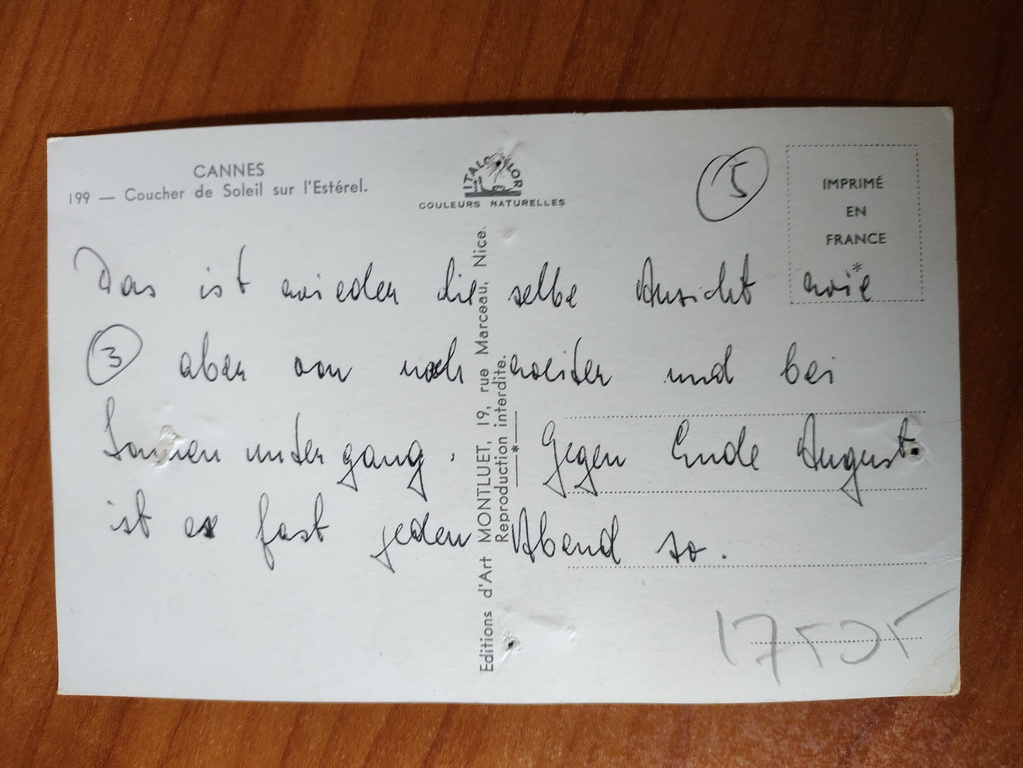 CANNES
199 — Coucher de Soleil sur l'Estérel.
ITALCOLOR
COULEURS NATURELLES
5
IMPRIMÉ
EN
FRANCE
Das ist wieder die selbe Ansicht wie
3 aber von noch weiter und bei
Sonnenuntergang. Gegen Ende August
ist es fast jeden Abend so.
Editions d'Art MONTLUET, 19, rue Marceau, Nice.
Reproduction interdite.
17505